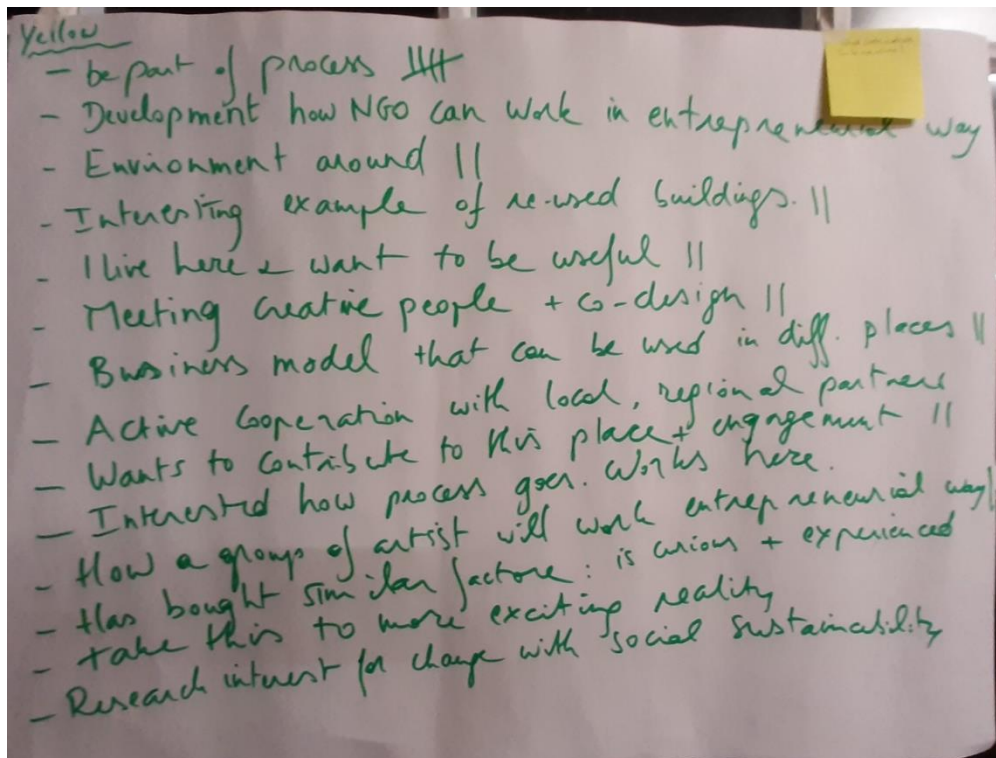 Yellow
- be part of process 卌
- Development how NGO can work in entrepreneurial way
- Environment around ||
- Interesting example of re-used buildings. ||
- I live here & want to be useful ||
- Meeting creative people + co-design ||
- Business model that can be used in diff. places ||
- Active cooperation with local, regional partners
- Wants to contribute to this place + engagement ||
- Interested how process goes. Works here.
- How a group of artist will work entrepreneurial way |
- Has bought similar factore : is curious + experienced
- take this to more exciting reality
- Research interest for change with social sustainability